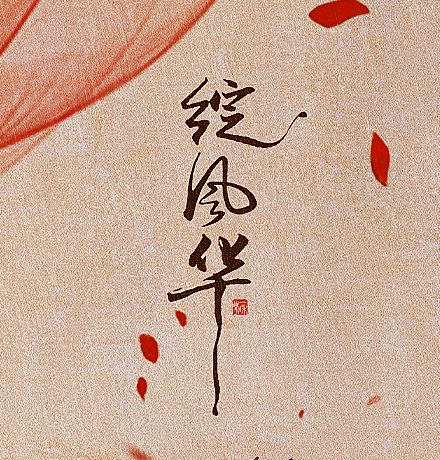 绽风华